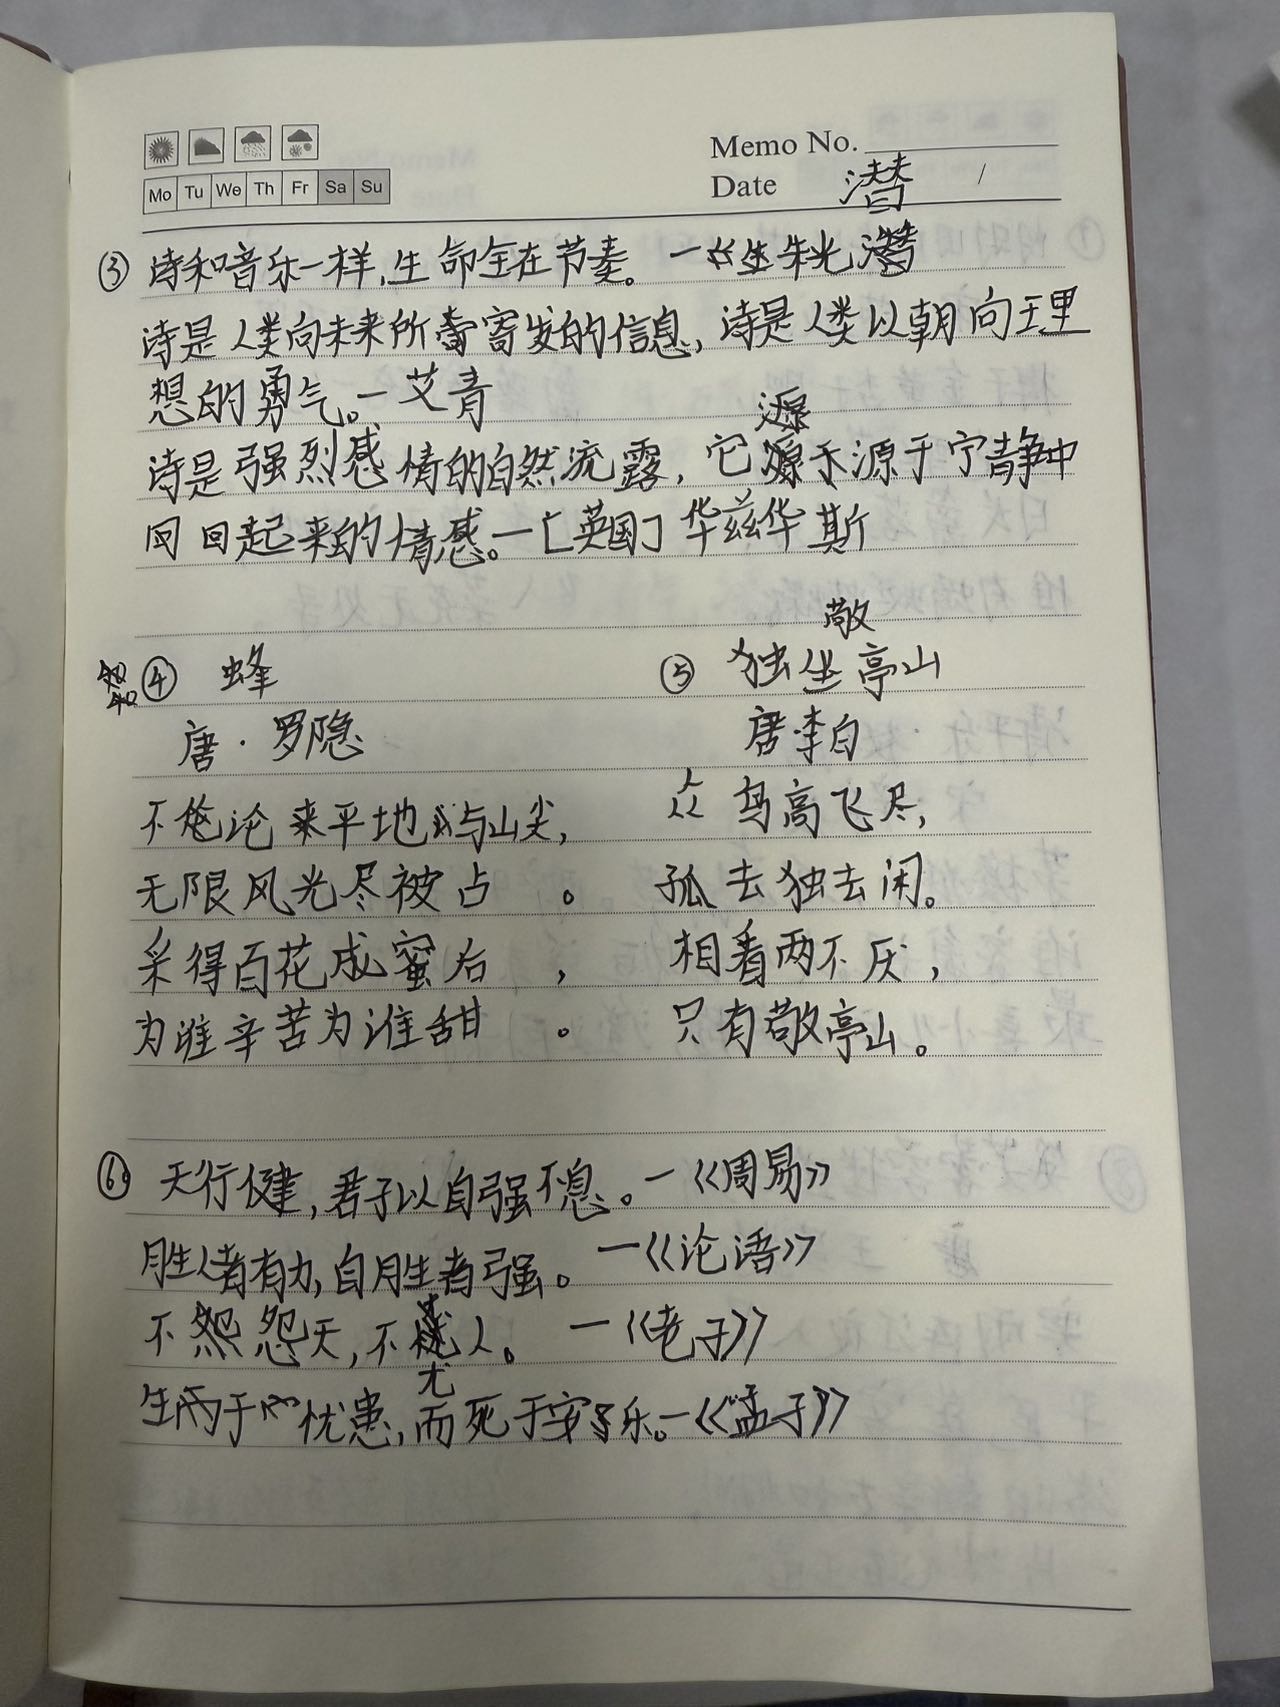 Memo No.
Mo Tu We Th Fr Sa Su
Date 潜 /
③ 诗和音乐一样,生命全在节奏。一朱光潜
诗是人类向未来所寄发的信息,诗是人类以朝向理
想的勇气。一艾青
源
诗是强烈感情的自然流露,它源于宁静中
回回起来的情感。一[英国]华兹华斯
敬
④ 蜂
唐·罗隐
不论来平地与山尖,
无限风光尽被占。
采得百花成蜜后,
为谁辛苦为谁甜。
⑤ 独坐亭山
唐·李白
众鸟高飞尽,
孤去独去闲。
相看两不厌,
只有敬亭山。
⑥ 天行健,君子以自强不息。一《周易》
胜人者有力,自胜者强。一《论语》
不怨天,不人。一《老子》
尤
生于忧患,而死于安乐。一《孟子》